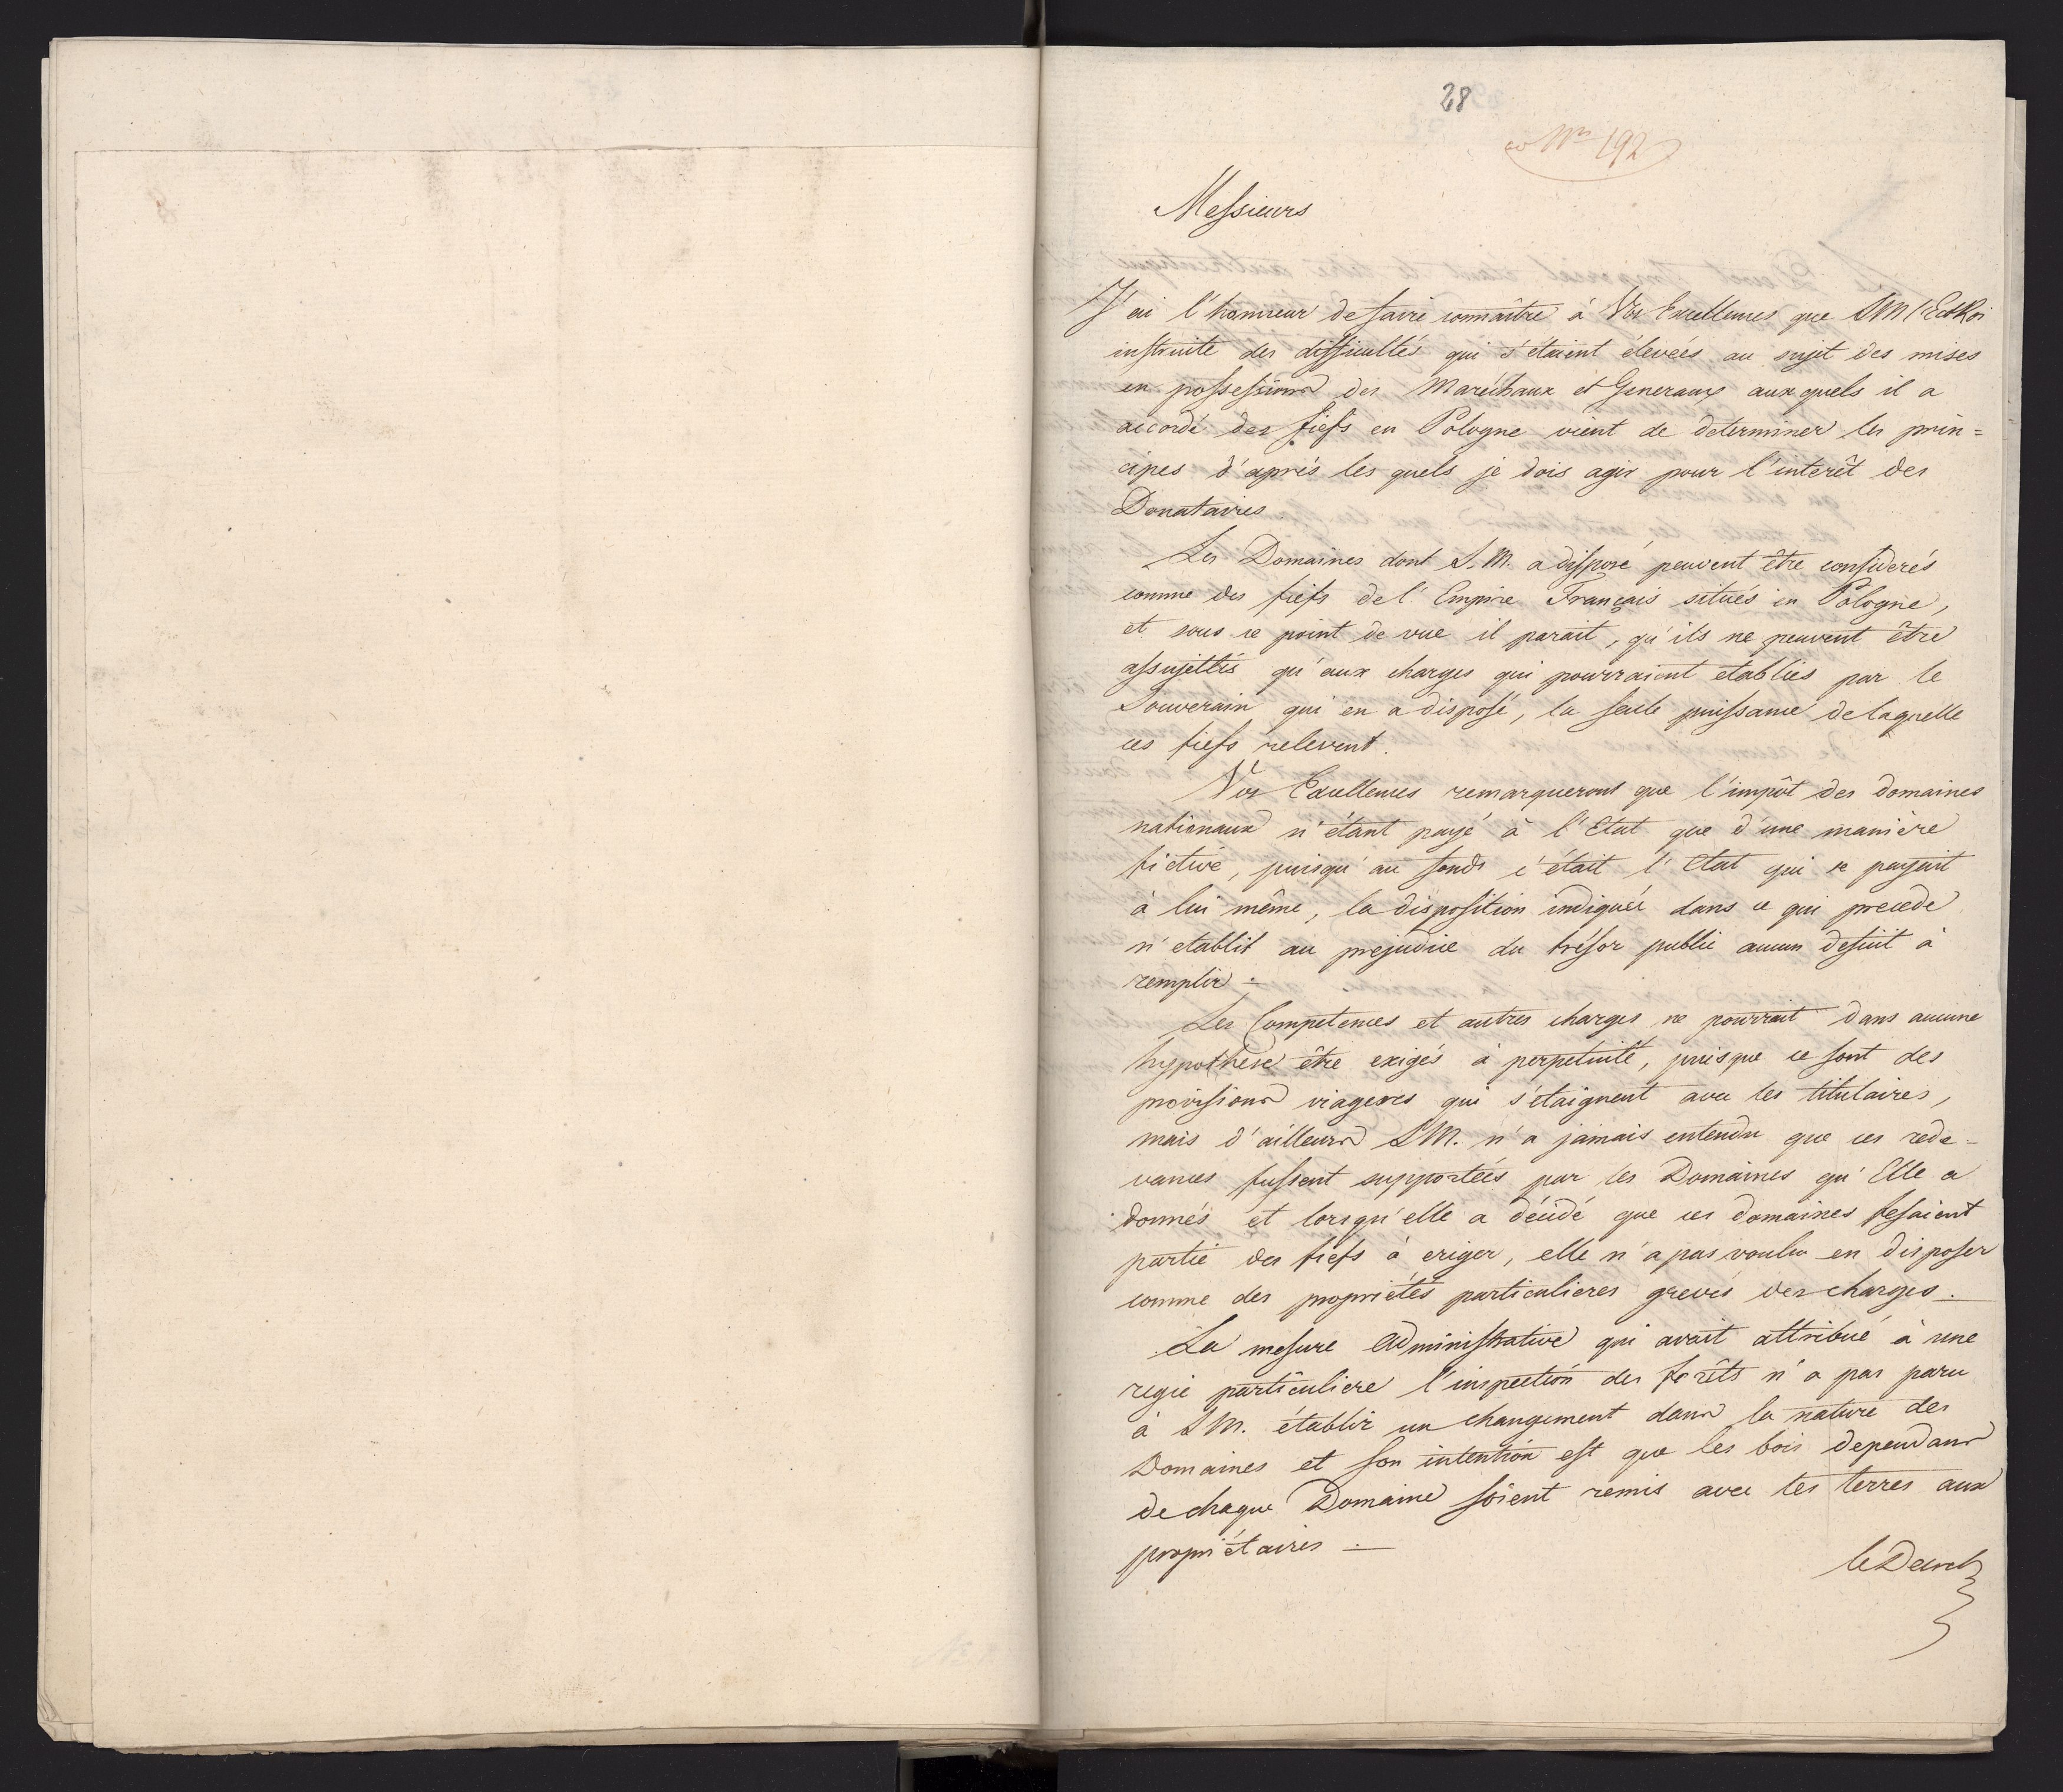 28
ad Nm 192
Messieurs
J'ai l'honneur de faire connaître à Vos Excellences que SM l'E et Roi
instruite des difficultés qui s'étaient élevées au sujet des mises
en possessions des Maréchaux et Generaux aux quels il a
accordé des fiefs en Pologne vient de determiner les prin=
cipes d'après les quels je dois agir pour l'interêt des
Donataires
Les Domaines dont S. M. a disposé peuvent être considerés
comme des fiefs de l'Empire Français situés en Pologne,
et sous ce point de vue il parait, qu'ils ne peuvent être
assujettis qu'aux charges qui pourraient etablies par le
Souverain qui en a disposé, la seule puissance de laquelle
ces fiefs relevent.
Vos Excellences remarqueront que l'impôt des domaines
nationaux n'étant payé à l'Etat que d'une manière
fictive, puisqu'au fonds c'était l'Etat qui se payait
à lui même, la disposition indiquée dans ce qui precede
n'etablit au prejudice du trésor public aucun deficit à
remplir -
Les Competences et autres charges ne pourrait dans aucune
hypothese être exigés à perpetuité, puisque ce sont des
provisions viageres qui s'étaignent avec les titulaires,
mais d'ailleurs SM. n'a jamais entendu que ces rede-
vances fussent supportées par les Domaines qu'Elle a
donnés et lorsqu'elle a décidé que ces domaines fesaient
partie des fiefs à eriger, elle n'a pas voulu en disposer
comme des propriétés particulieres grevés des charges.
La mesure administrative qui avait attribué à une
regie particuliere l'inspection des forêts n'a pas paru
à SM. établir un changement dans la nature des
Domaines et son intention est que les bois dependans
de chaque Domaine soient remis avec les terres aux
propriétaires -
le Decret